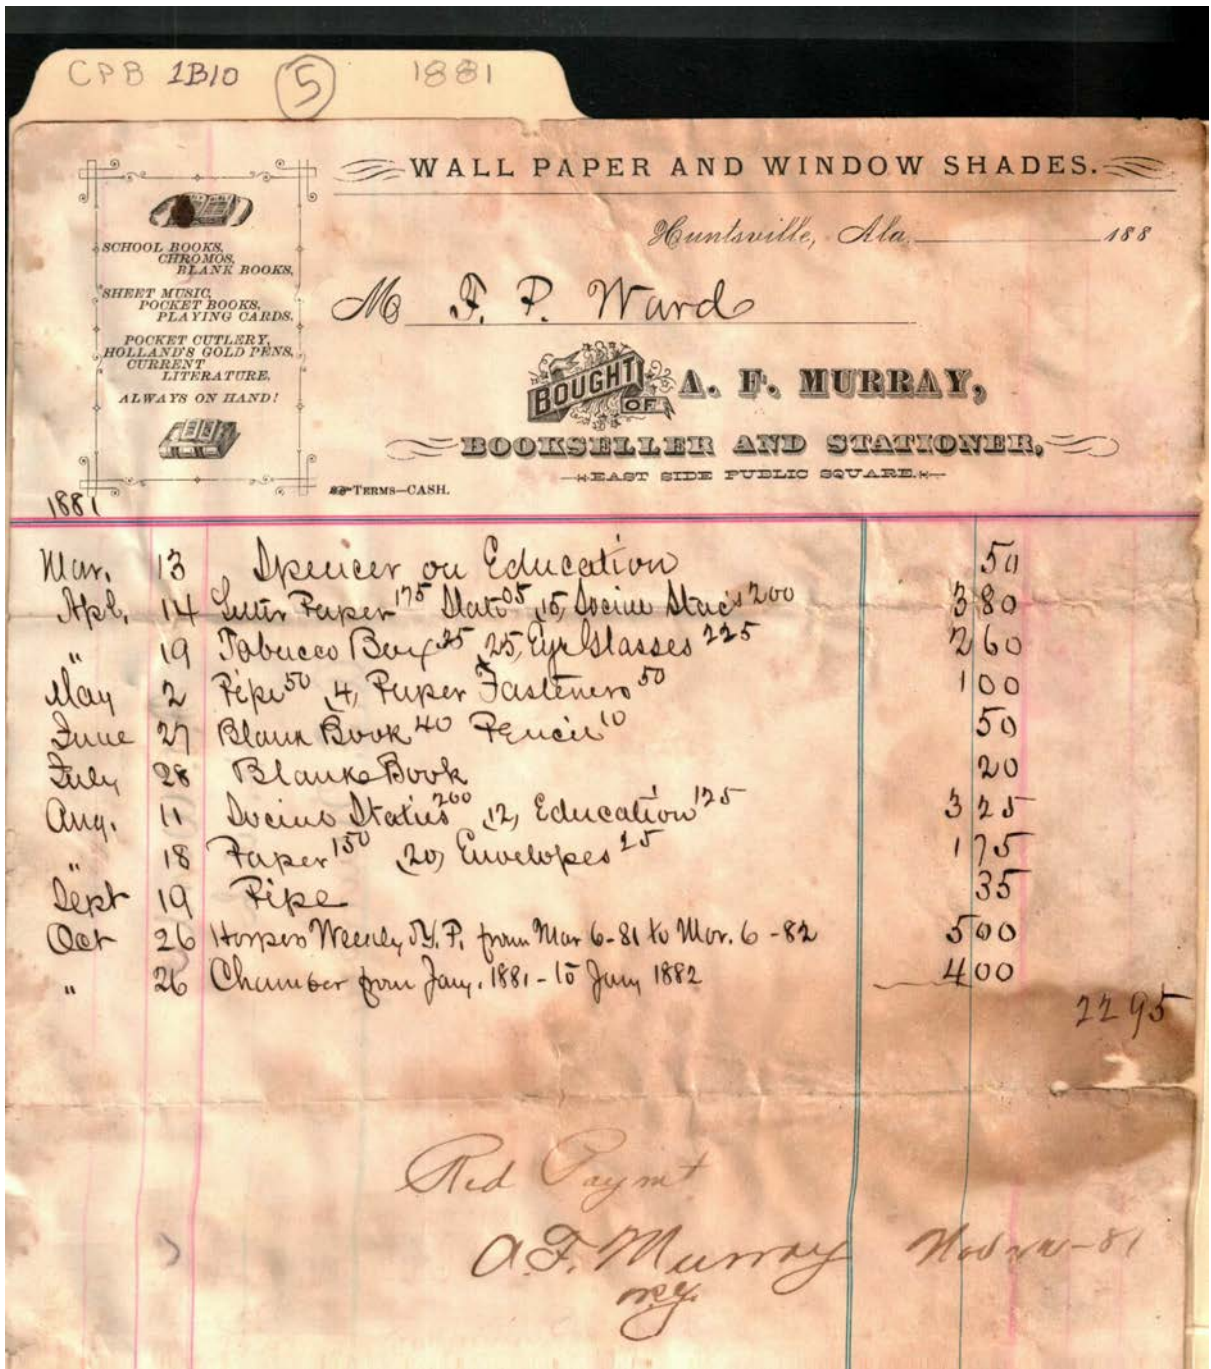 CPB 1B10 5 1881
WALL PAPER AND WINDOW SHADES.
SCHOOL BOOKS,
CHROMOS,
BLANK BOOKS,
SHEET MUSIC,
POCKET BOOKS,
PLAYING CARDS.
POCKET CUTLERY,
HOLLAND'S GOLD PENS,
CURRENT
LITERATURE,
ALWAYS ON HAND!
Huntsville, Ala. 188
M F. P. Ward
BOUGHT OF A. F. MURRAY,
BOOKSELLER AND STATIONER,
EAST SIDE PUBLIC SQUARE.
TERMS—CASH.
1881
Mar. 13 Spencer on Education 50
Apl. 14 Letter Paper 175 Slate 05 15, 200 3 80
" 19 Tobacco Box 25, Eye Glasses 225 2 60
May 2 Pipe 50 4, Paper Fasteners 50 1 00
June 27 Blank Book 40 Pencil 10 50
July 28 Blank Book 20
Aug. 11 200 12, Education 125 3 25
" 18 Paper 150 20, Envelopes 25 1 75
Sept 19 Pipe 35
Oct 26 Harpers Weekly from Mar 6-81 to Mar. 6-82 5 00
" 26 Chamber from Jany. 1881 - to Jany 1882 4 00
22 95
Red Paymt
A. F. Murray
-81